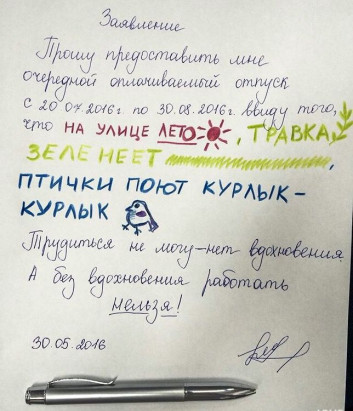 Заявление
Прошу предоставить мне
очередной оплачиваемый отпуск
с 20.07.2016г. по 30.08.2016г. ввиду того,
что НА УЛИЦЕ ЛЕТО, ТРАВКА
ЗЕЛЕНЕЕТ,
ПТИЧКИ ПОЮТ КУРЛЫК-
КУРЛЫК
Трудиться не могу–нет вдохновения.
А без вдохновения работать
нельзя!
30.05.2016